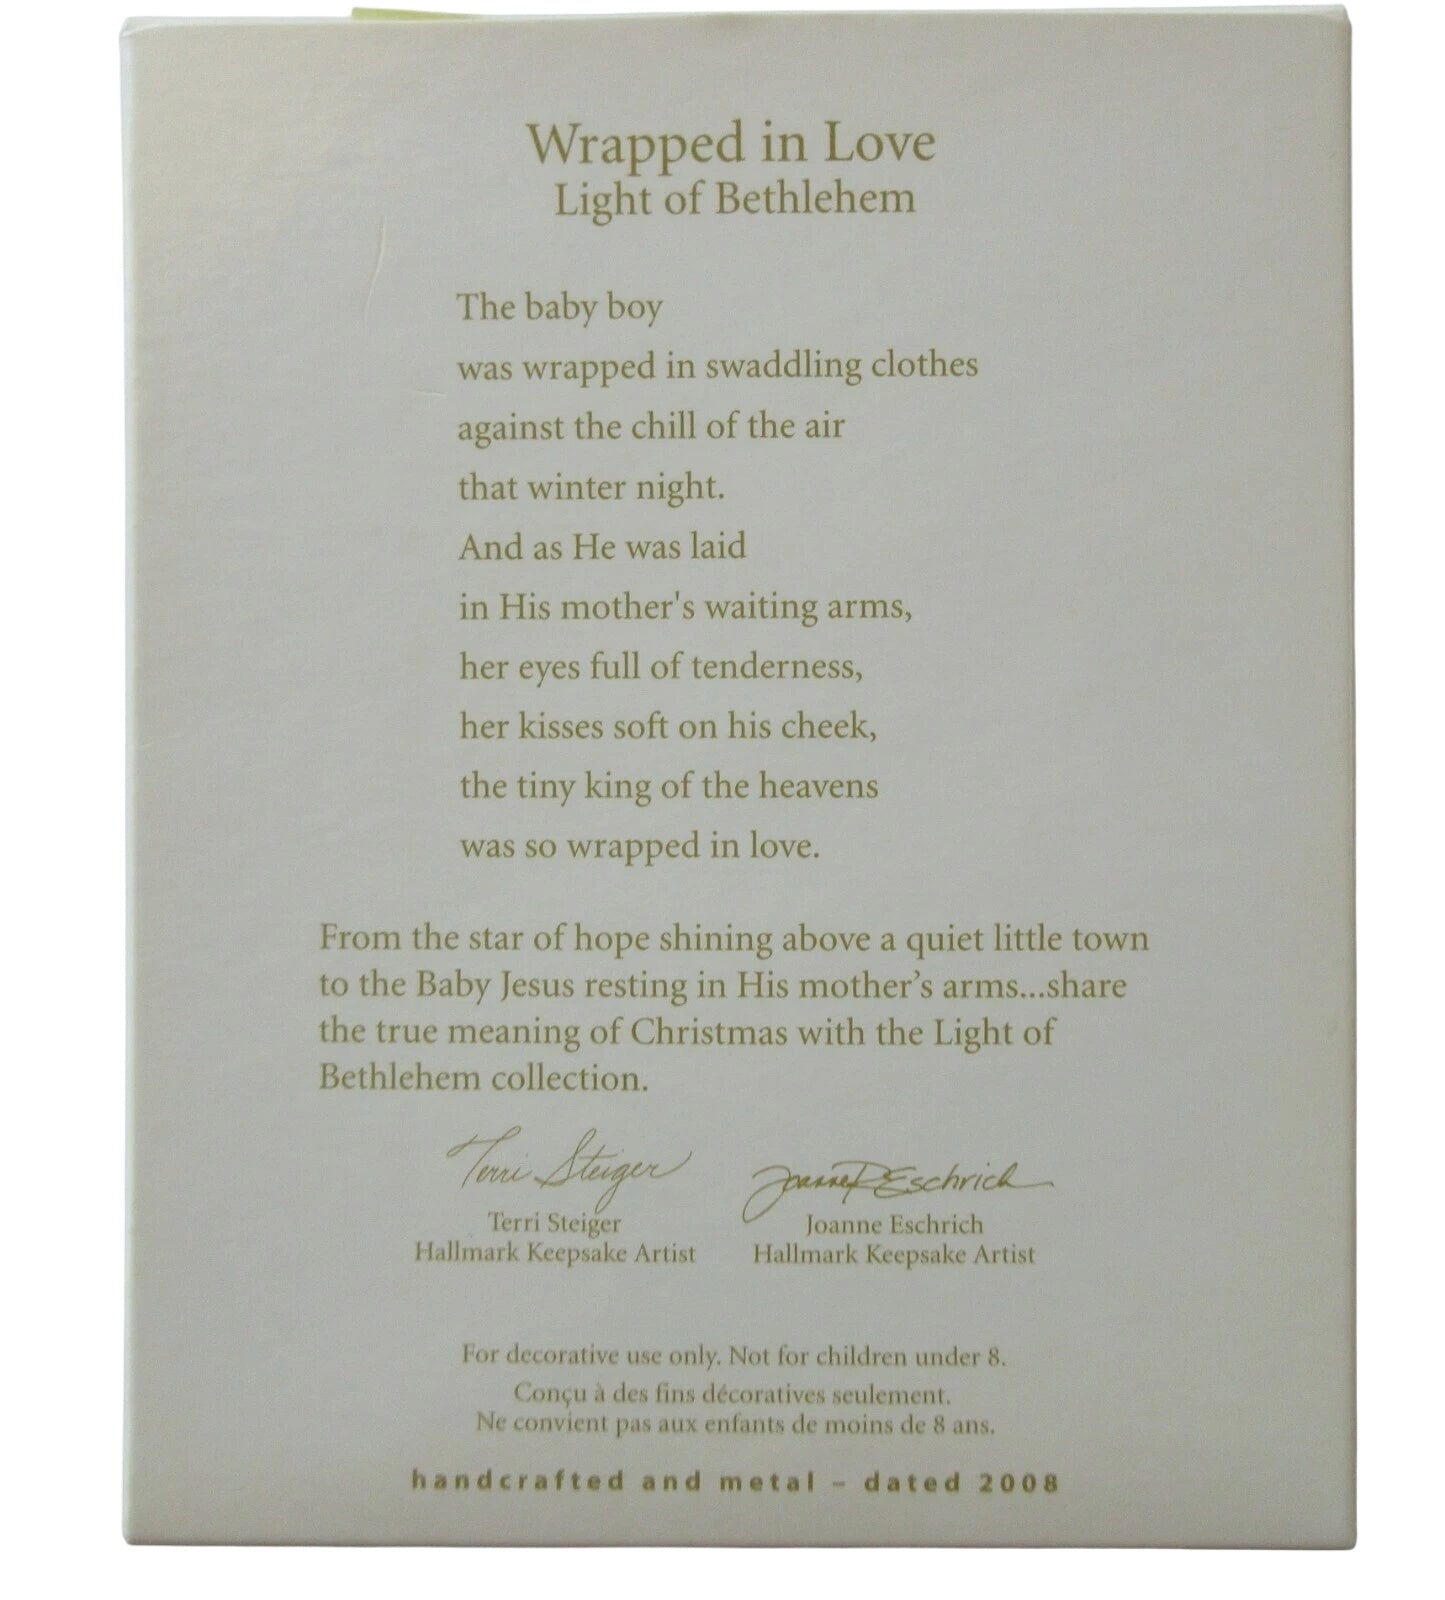 Wrapped in Love
Light of Bethlehem
The baby boy
was wrapped in swaddling clothes
against the chill of the air
that winter night.
And as He was laid
in His mother's waiting arms,
her eyes full of tenderness,
her kisses soft on his cheek,
the tiny king of the heavens
was so wrapped in love.
From the star of hope shining above a quiet little town
to the Baby Jesus resting in His mother’s arms...share
the true meaning of Christmas with the Light of
Bethlehem collection.
Terri Steiger JoannePEschrich
Terri Steiger Joanne Eschrich
Hallmark Keepsake Artist Hallmark Keepsake Artist
For decorative use only. Not for children under 8.
Conçu à des fins décoratives seulement.
Ne convient pas aux enfants de moins de 8 ans.
handcrafted and metal – dated 2008